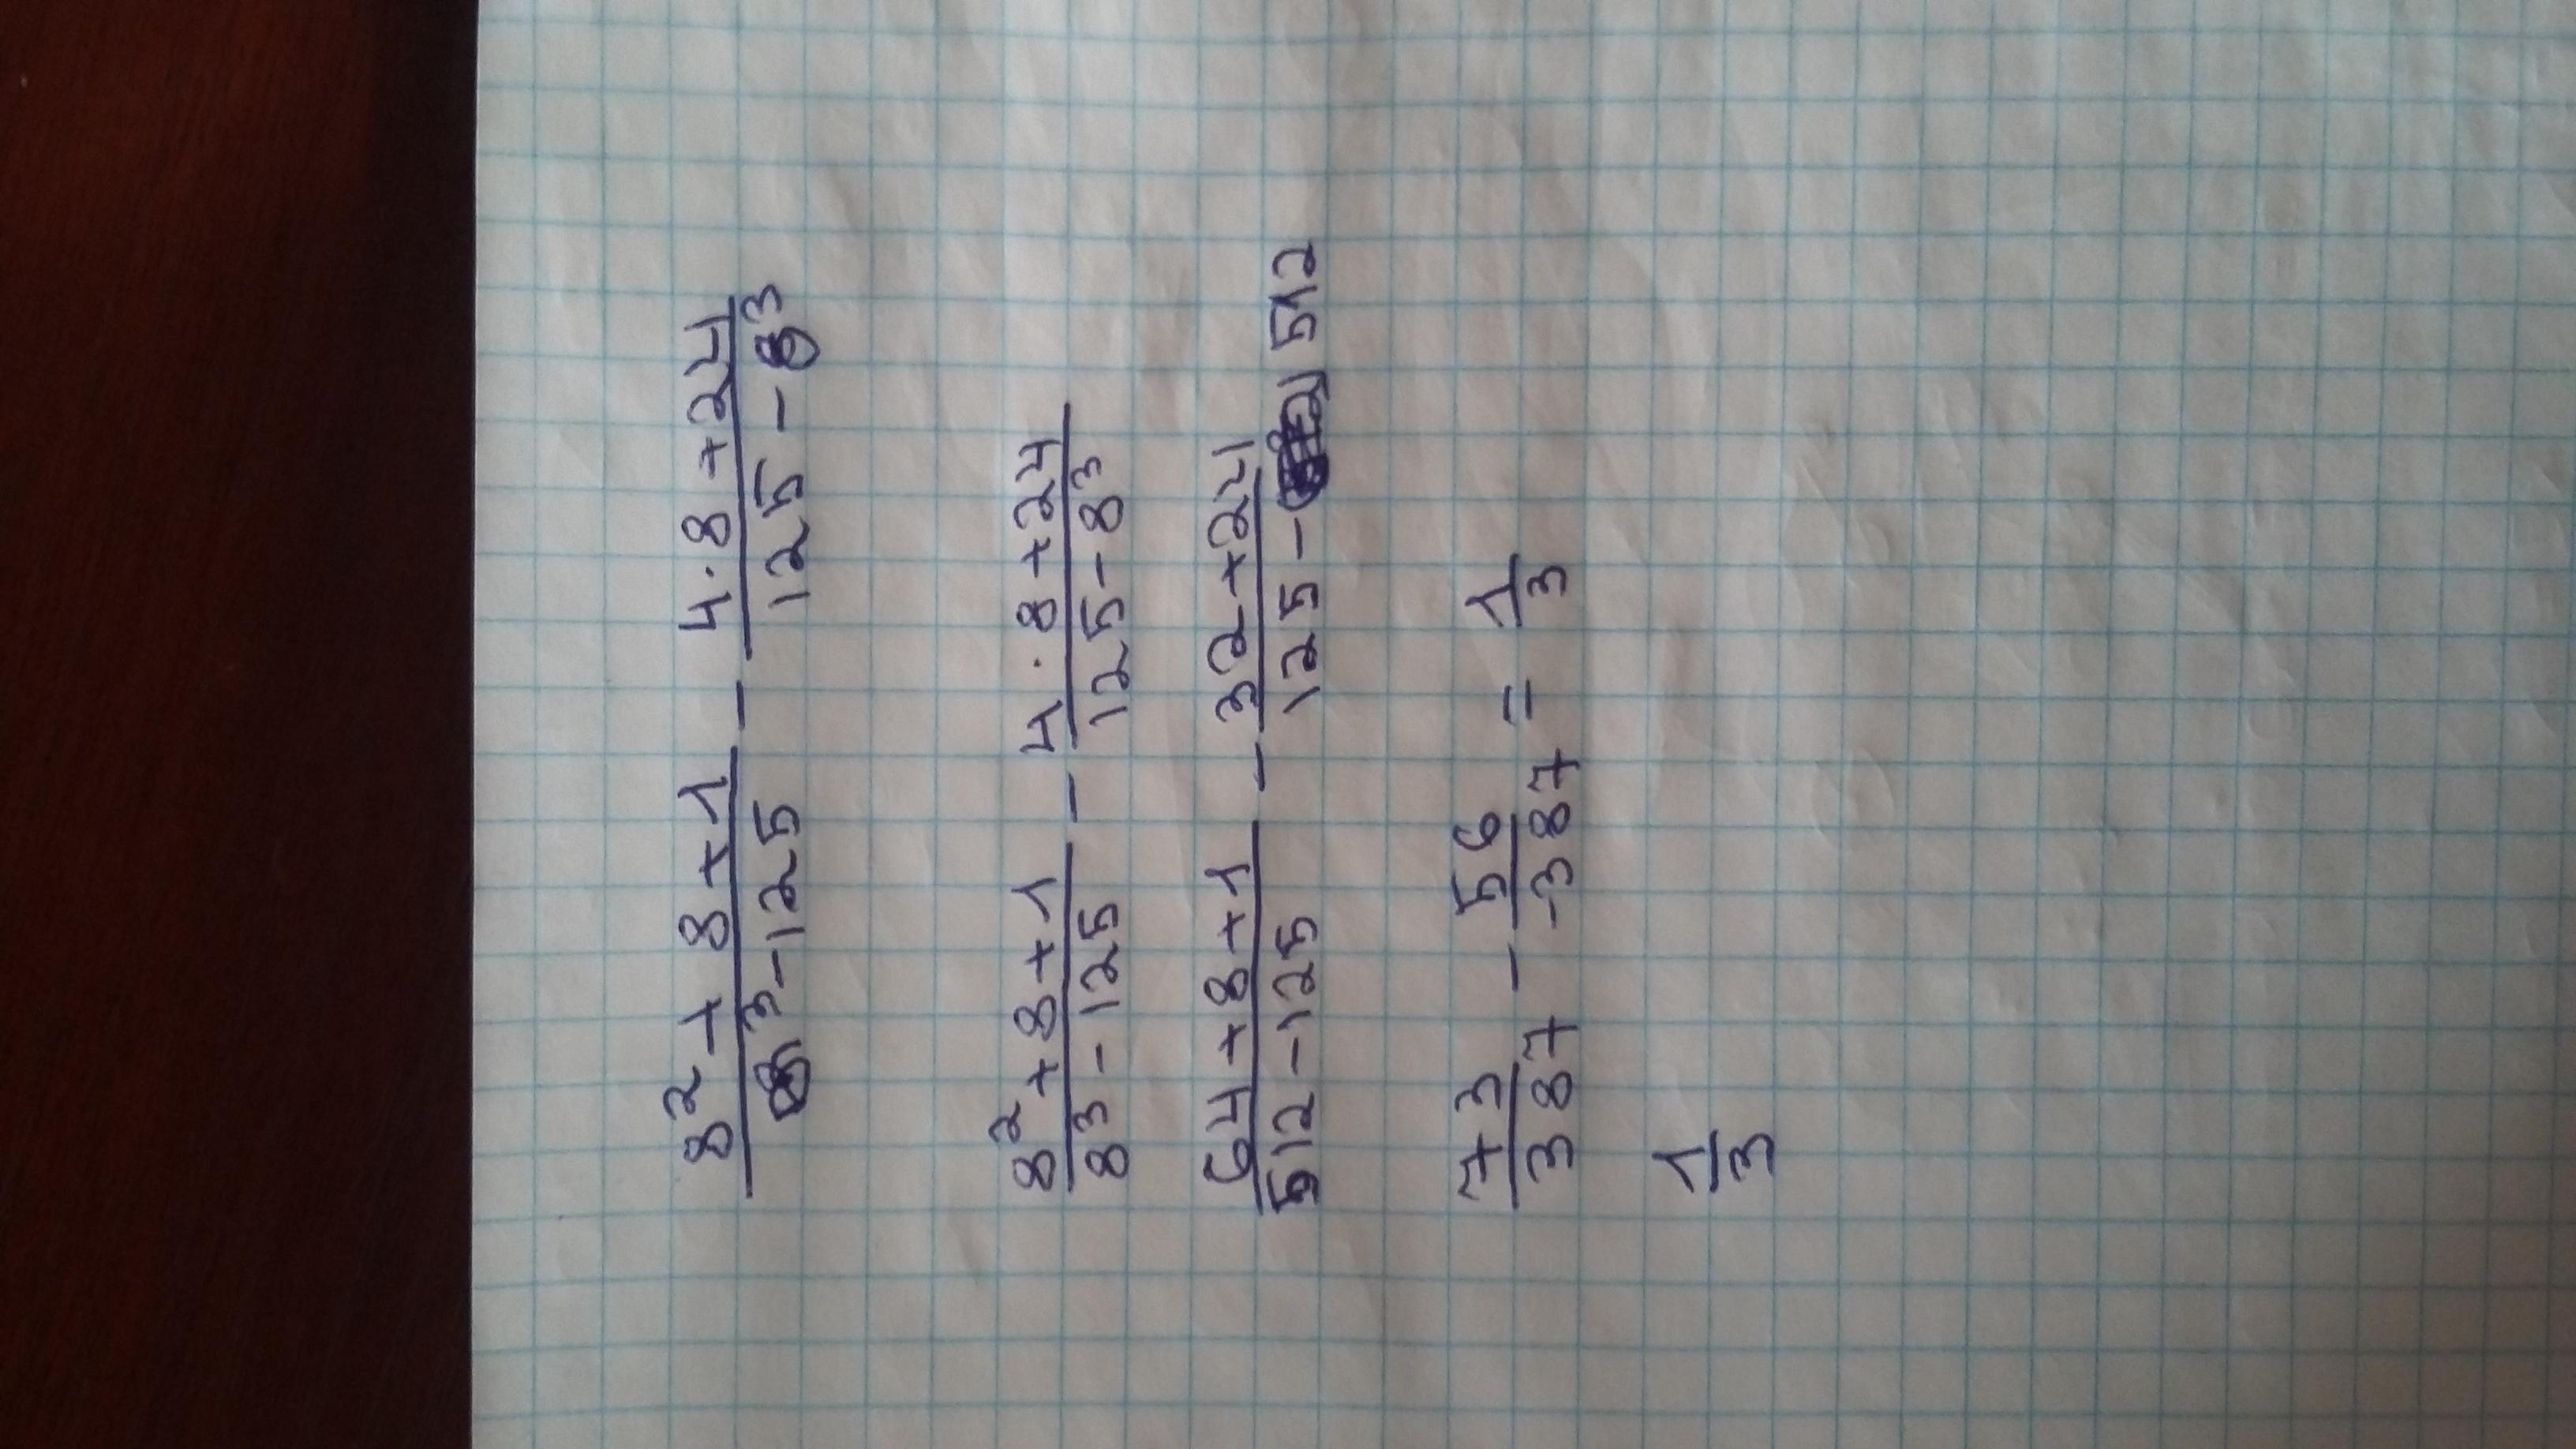 (8² + 8 + 1)/(8³ - 125) - (4 · 8 + 24)/(125 - 8³)
(8² + 8 + 1)/(8³ - 125) - (4 · 8 + 24)/(125 - 8³)
(64 + 8 + 1)/(512 - 125) - (32 + 24)/(125 - 512)
73/387 - 56/-387 = 1/3
1/3